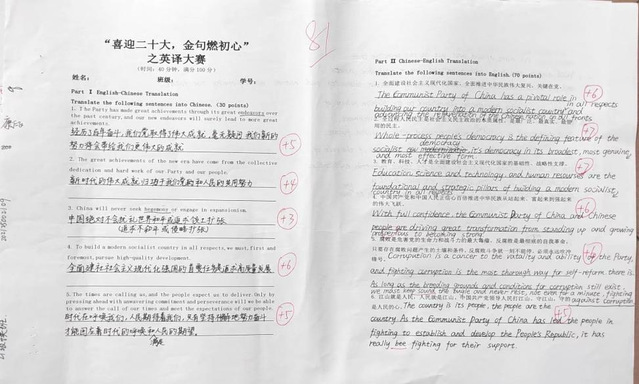 “喜迎二十大，金句燃初心”
之英译大赛
（时间：40 分钟，满分 100 分）
81
姓名： 班级： 学号：
Part Ⅰ English-Chinese Translation
Translate the following sentences into Chinese. (30 points)
1. The Party has made great achievements through its great endeavors over
the past century, and our new endeavors will surely lead to more great
achievements.
经历百年奋斗，我们党取得了伟大成就，毫无疑问我们新的
努力将会带给我们更伟大的成就 +5
2. The great achievements of the new era have come from the collective
dedication and hard work of our Party and our people.
新时代的伟大成就归功于我们党和人民的共同努力 +4
3. China will never seek hegemony or engage in expansionism.
中国绝对不会 +3
4. To build a modern socialist country in all respects, we must, first and
foremost, pursue high-quality development.
全面建设社会主义现代化强国的首要任务是追求高质量发展 +6
5. The times are calling us, and the people expect us to deliver. Only by
pressing ahead with unwavering commitment and perseverance will we be able
to answer the call of our times and meet the expectations of our people.
时代在呼唤我们，人民期待着我们，只有坚持 地努力奋斗
才能回应着时代的呼唤和人民的期望。 +5
Part Ⅱ Chinese-English Translation
Translate the following sentences into English. (70 points)
1. 全面建设社会主义现代化国家、全面推进中华民族伟大复兴，关键在党。
The Communist Party of China has a pivotal role in +6
building our country into a modern socialist country in all respects
and advancing the rejuvenation of the Chinese nation on all fronts
Whole-process people's democracy is the defining feature of +7
the socialist democracy it's democracy in its broadest, most genuine,
and most effective form.
3. 教育、科技、人才是全面建设社会主义现代化国家的基础性、战略性支撑。 +7
Education, science and technology, and human resources are the
foundational and strategic pillars of building a modern socialist
country
4. 中国共产党和中国人民正信心百倍推进中华民族从站起来、富起来到强起来
的伟大飞跃。
With full confidence, the Communist Party of China and Chinese
people are driving great transformation from standing up and growing
prosperous to becoming strong
5. 腐败是危害党的生命力和战斗力的最大毒瘤，反腐败是最彻底的自我革命。
只要存在腐败问题产生的土壤和条件，反腐败斗争就一刻不能停，必须永远吹冲
锋号。 +6
Corruption is a cancer to the vitality and ability of the Party,
and fighting corruption is the most thorough way for self-reform there is.
As long as the breeding grounds and conditions for corruption still exist,
we must keep sounding the bugle and never rest, not even for a minute, fighting
against corruption
6. 江山就是人民，人民就是江山。中国共产党领导人民打江山、守江山，守的
是人民的心。 +5
The country is its people, the people are the
country. As the Communist Party of China has led the people in
fighting to establish and develop the People's Republic, it has
really bee fighting for their support.